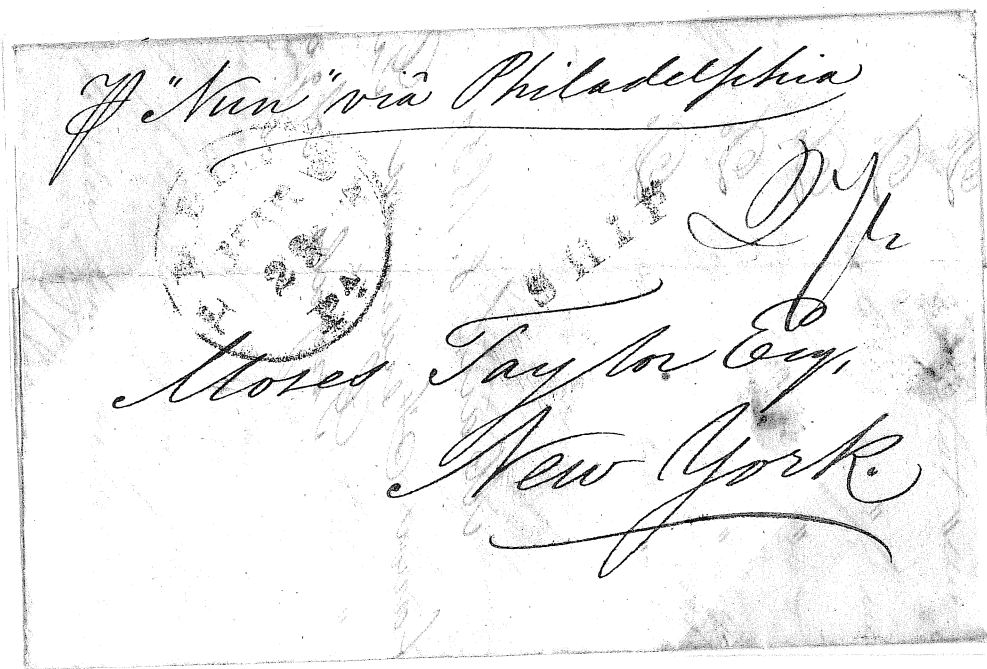 ℘ "Nun" viâ Philadelphia
28
Pa
SHIP
Moses Taylor Esq,
New York.